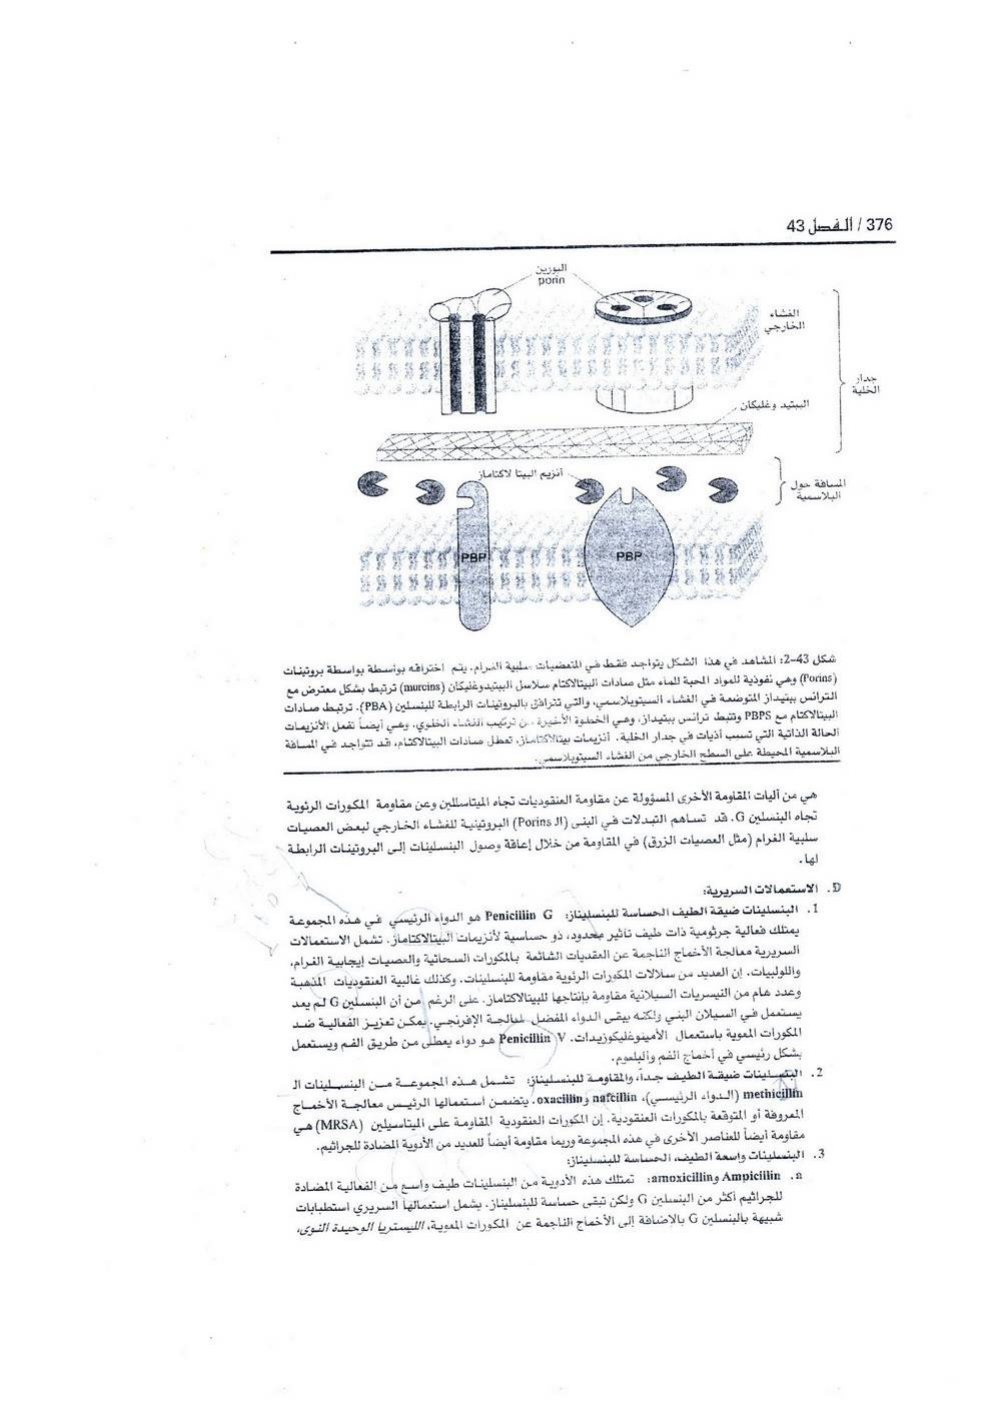 376 / الفصل 43
البورين
porin
الغشاء
الخارجي
جدار
الخلية
الببتيد وغليكان
أنزيم البيتا لاكتاماز
المسافة حول
البلاسمية
PBP
PBP
شكل 43-2: المشاهد في هذا الشكل يتواجد فقط في المتعضيات سلبية الغرام. يتم اختراقه بواسطة بواسطة بروتينات
(Porins) وهي نفوذية للمواد المحبة للماء مثل صادات البيتالاكتام سلاسل الببتيدوغليكان (murcins) ترتبط بشكل معترض مع
الترانس ببتيداز المتوضعة في الغشاء السيتوبلاسمي، والتي تترافق بالبروتينات الرابطة للبنسلين (PBA). ترتبط صادات
البيتالاكتام مع PBPS وتثبط ترانس ببتيداز، وهي الخطوة الأخيرة من تركيب الغشاء الخلوي. وهي أيضاً تفعل الأنزيمات
الحالة الذاتية التي تسبب أذيات في جدار الخلية. أنزيمات بيتالاكتاماز، تعطل صادات البيتالاكتام، قد تتواجد في المسافة
البلاسمية المحيطة على السطح الخارجي من الغشاء السيتوبلاسمي.
هي من آليات المقاومة الأخرى المسؤولة عن مقاومة العنقوديات تجاه الميتاسللين وعن مقاومة المكورات الرئوية
تجاه البنسلين G. قد تساهم التبدلات في البنى (الـ Porins) البروتينية للغشاء الخارجي لبعض العصيات
سلبية الغرام (مثل العصيات الزرق) في المقاومة من خلال إعاقة وصول البنسلينات إلى البروتينات الرابطة
لها.
D. الاستعمالات السريرية:
1. البنسلينات ضيقة الطيف الحساسة للبنسليناز: Penicillin G هو الدواء الرئيسي في هذه المجموعة
يمتلك فعالية جرثومية ذات طيف تأثير محدود، ذو حساسية لأنزيمات البيتالاكتاماز. تشمل الاستعمالات
السريرية معالجة الأخماج الناجمة عن العقديات الشائعة بالمكورات السحائية والعصيات إيجابية الغرام،
واللولبيات. إن العديد من سلالات المكورات الرئوية مقاومة للبنسلينات. وكذلك غالبية العنقوديات المذهبة
وعدد هام من النيسريات السيلانية مقاومة بإنتاجها للبيتالاكتاماز. على الرغم من أن البنسلين G لم يعد
يستعمل في السيلان البني ولكنه يبقى الدواء المفضل لمعالجة الإفرنجي. يمكن تعزيز الفعالية ضد
المكورات المعوية باستعمال الأمينوغليكوزيدات. Penicillin V هو دواء يعطى من طريق الفم ويستعمل
بشكل رئيسي في أخماج الفم والبلعوم.
2. البنسلينات ضيقة الطيف جداً، والمقاومة للبنسليناز: تشمل هذه المجموعة من البنسلينات الـ
methicillin (الدواء الرئيسي)، nafcillin وoxacillin. يتضمن استعمالها الرئيس معالجة الأخماج
المعروفة أو المتوقعة بالمكورات العنقودية. إن المكورات العنقودية المقاومة على الميتاسيلين (MRSA) هي
مقاومة أيضاً للعناصر الأخرى في هذه المجموعة وربما مقاومة أيضاً للعديد من الأدوية المضادة للجراثيم.
3. البنسلينات واسعة الطيف، الحساسة للبنسليناز:
a. Ampicillin وamoxicillin: تمتلك هذه الأدوية من البنسلينات طيف واسع من الفعالية المضادة
للجراثيم أكثر من البنسلين G ولكن تبقى حساسة للبنسليناز. يشمل استعمالها السريري استطبابات
شبيهة بالبنسلين G بالإضافة إلى الأخماج الناجمة عن المكورات المعوية، الليستريا الوحيدة النوى،